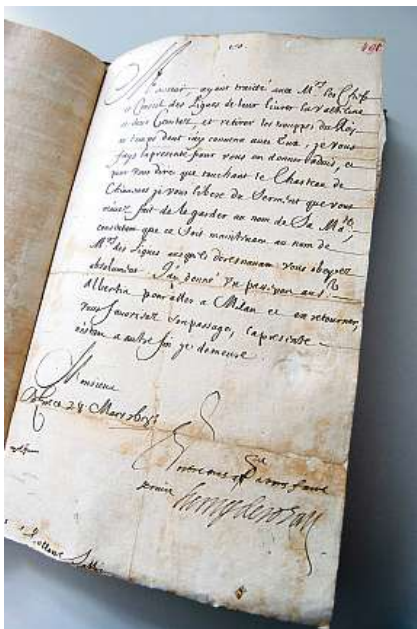 Monsieur, ayant traité avec Mrs les Chefs
et Conseil des Ligues de leur livrer la Valteline
et deux Comtez, et retirer les trouppes du Roy
au temps dont iay convenu avec Eux; je vous
fays la presente pour vous en donner advis, et
pour vous dire que touchant le Chasteau de
je vous libere du Serment que vous
m'avez fait de le garder au nom de Sa Mate,
que ce soit maintenant au nom de
Mrs des Ligues ausquels doresnavant vous obeyrez
absolument. J'ay donné un passeport au Sr
Albertin pour aller a Milan et en retourner,
vous son passage, la presente
a autre fin je demeure.
Monsieur
ce 28 Mars
a vous faire
service
Henry de Rohan